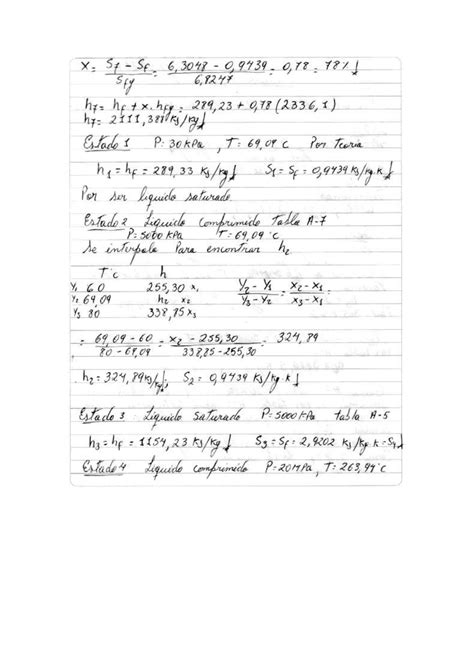 X = S7 - Sf / Sfg = 6,3048 - 0,9439 / 6,8247 = 0,78 = 78%
h7 = hf + x · hfg = 289,23 + 0,78 (2336,1)
h7 = 2111,388 KJ/kg
Estado 1 P = 30 KPa, T = 69,09 °C Por Teoria
h1 = hf = 289,33 KJ/kg S1 = Sf = 0,9439 KJ/kg·k
Por ser liquido saturado
Estado 2 Liquido comprimido tabla A-7
P = 5000 KPa T = 69,09 °C
Se interpola Para encontrar h2
T °c h
Y1 60 255,30 x1
Y2 69,09 h2 x2
Y3 80 338,85 x3
Y2 - Y1 / Y3 - Y2 = x2 - x1 / x3 - x2
= 69,09 - 60 / 80 - 69,09 = x2 - 255,30 / 338,85 - 255,30 = 324,89
h2 = 324,89 KJ/kg; S2 = 0,9439 KJ/kg·k
Estado 3 Liquido saturado P = 5000 KPa tabla A-5
h3 = hf = 1154,23 KJ/kg S3 = Sf = 2,9202 KJ/kg·k = S4
Estado 4 Liquido comprimido P = 20 MPa, T = 263,94 °C